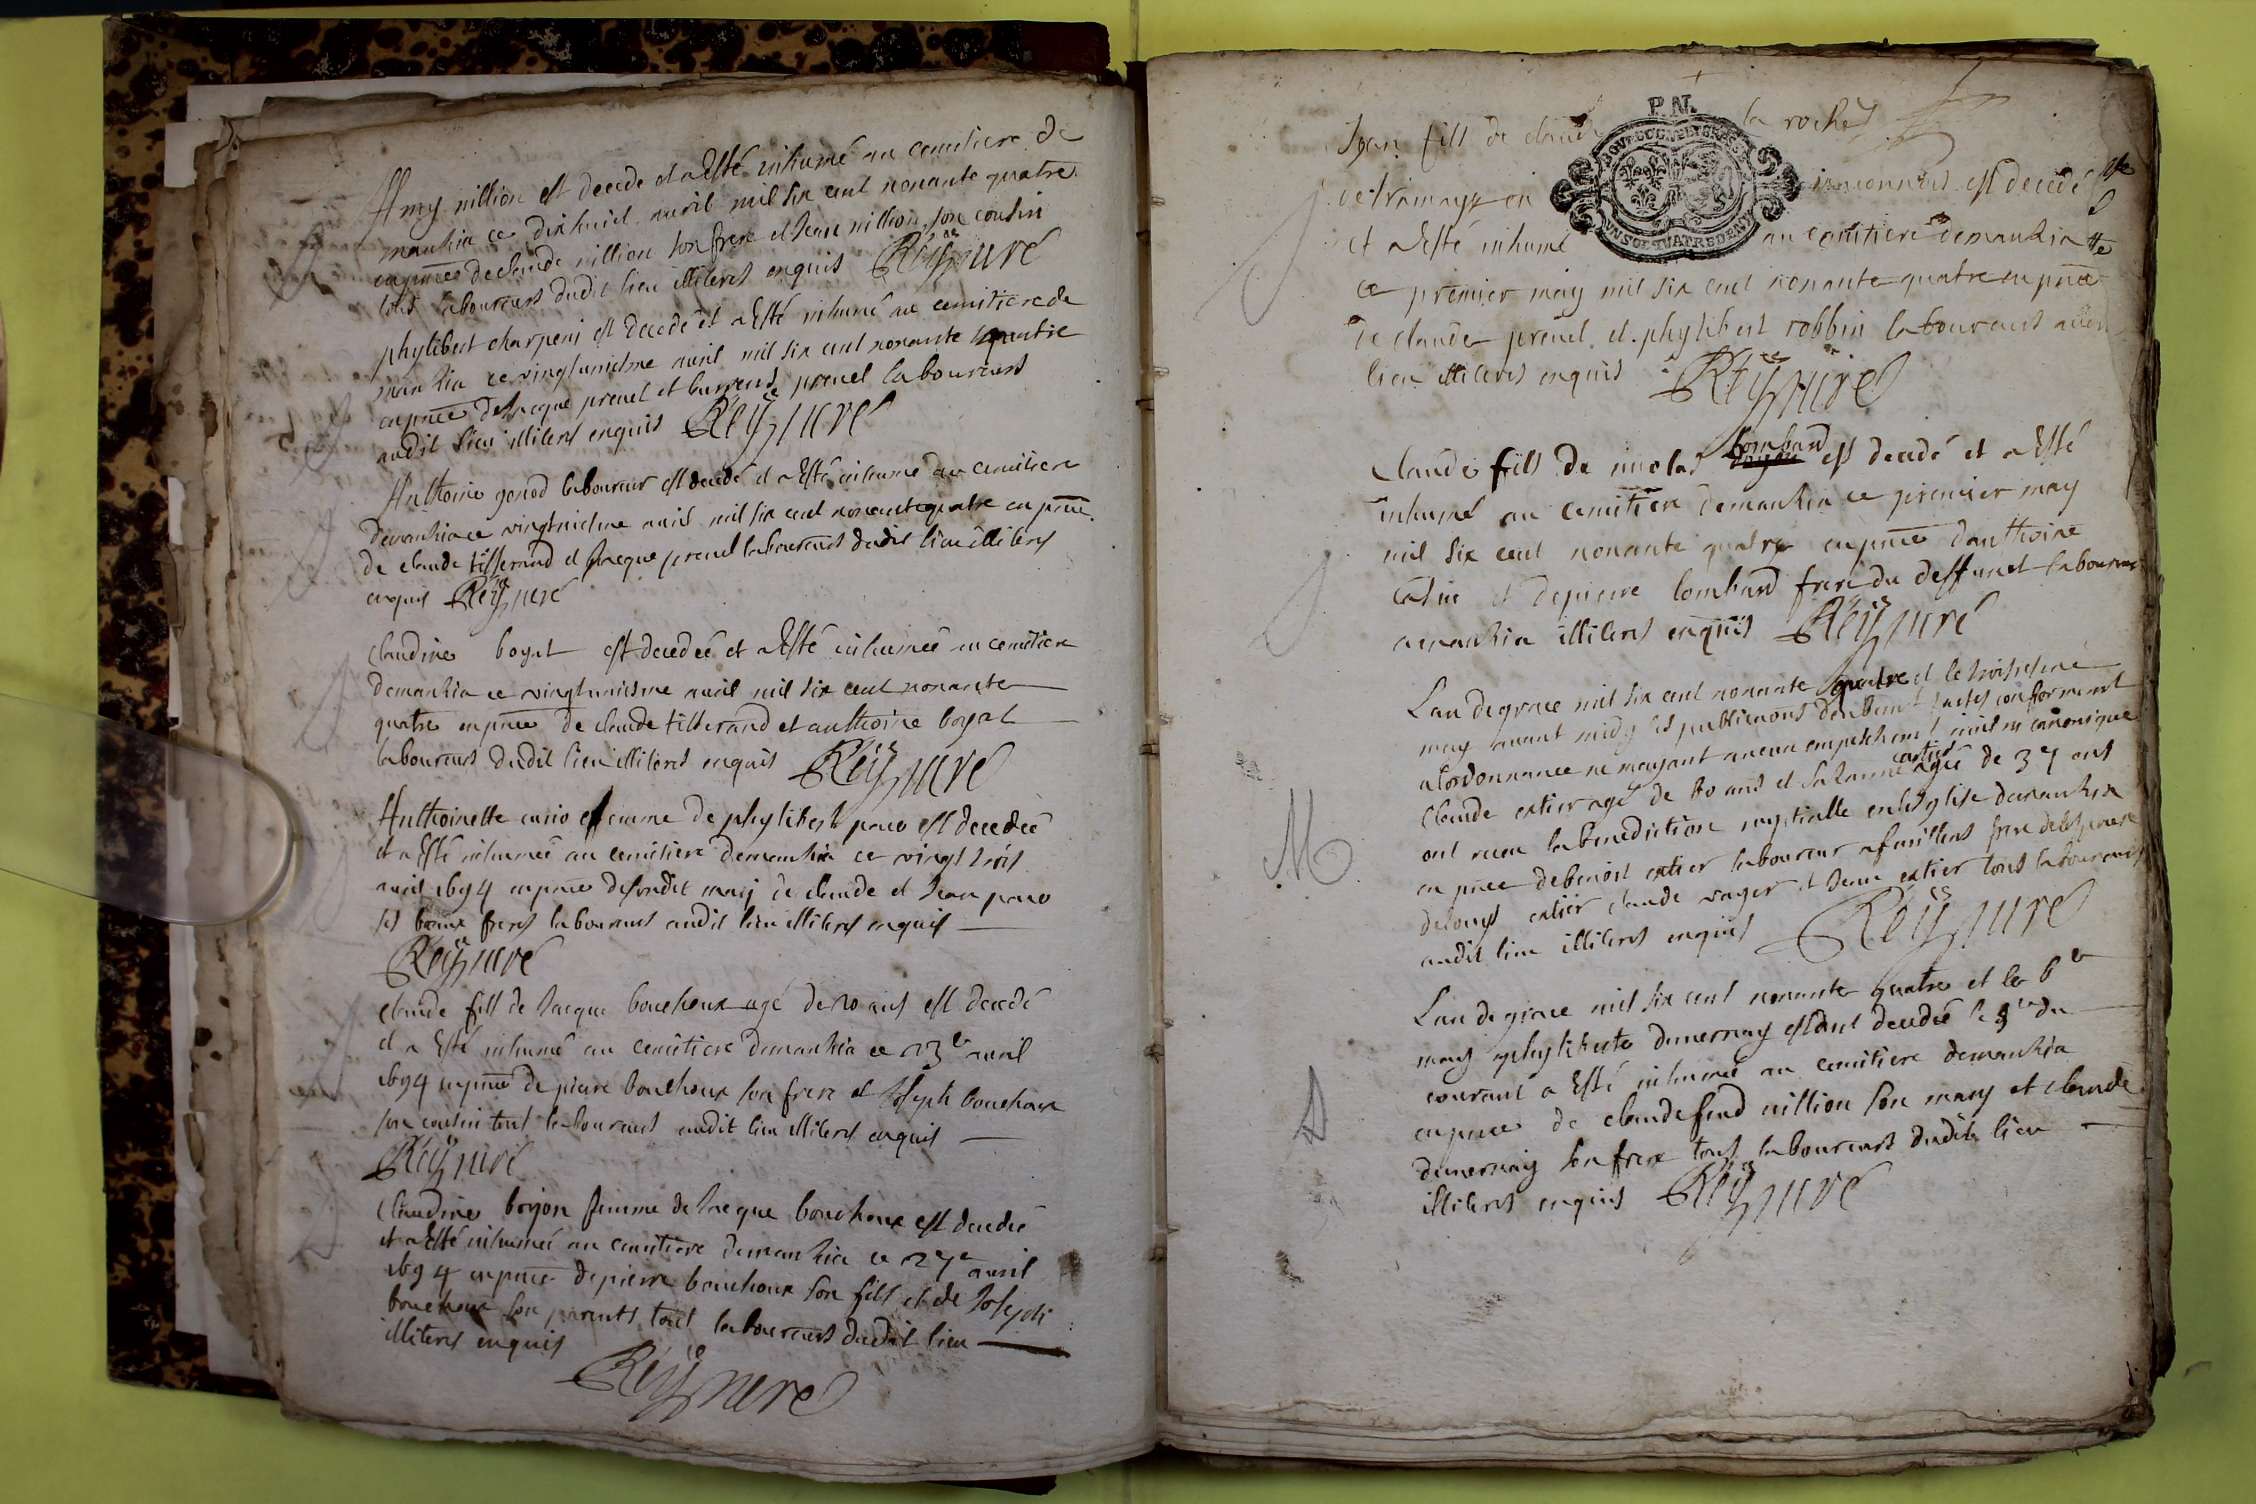 Amy nillion est decede et a Esté inhumé au cemitiere de
mankia ce dixhuict auril mil six cent nonante quatre
enpnce declaude nillion son frere et Jean nillion son cousin
tous laboureurs dudit lieu illiteres enquis Reÿ curé
phylibert charpeni est decedé et a Esté inhumé au cemitiere de
mankia ce vingtuniesme auril mil six cent nonante quatre
enpnce deJacque preuel et preuel laboureurs
audit lieu illiteres enquis Reÿ curé
Anthoine genod laboureur est decedé et a Esté inhumé au cemitiere
demankia ce vingtuiesme auril mil six cent nonante quatre en pnce
de claude tisserand et Jacque preuel laboureurs dudit lieu illiteres
enquis Reÿ curé
claudine boyat est decedeé et a Esté inhumeé au cemitiere
demankia ce vingtuniesme auril mil six cent nonante
quatre enpnce de claude tisserand et anthoine boyat
laboureurs dudit lieu illiteres enquis Reÿ curé
Anthoinette femme de phylibert est decedeé
et a Esté inhumeé au cemitiere demankia ce vingt trois
auril 1694 enpnce desondit mary de claude et Jean
ses beaux freres laboureurs audit lieu illiteres enquis
Reÿ curé
claude fils de Jacque bouchoux agé de 20 ans est decedé
et a Esté inhumé au cemitiere demankia ce 23e auril
1694 enpnce de pierre bouchoux son frere et Joseph bouchoux
son cousin tout laboureurs audit lieu illiteres enquis
Reÿ curé
claudine boyon femme de Jacque bouchoux est decedeé
et a Esté inhumeé au cemitiere demankia ce 27e auril
1694 enpnce depierre bouchoux son fils et de Joseph
bouchoux son parents tout laboureurs dudit lieu
illiteres enquis
Reÿ curé
P.N.
Jean fils de claude la roche
est decedé
et a Esté inhumé au cemitiere demankia
ce premier may mil six cent nonante quatre en pnce
de claude preuel et phylibert robbin laboureurs
lieu illiteres enquis Reÿ curé
claude fils de nicolas lombard est decedé et a Esté
inhumé au cemitiere demankia ce premier may
mil six cent nonante quatre enpnce danthoine
catin et depierre lombard frere du deffunct laboureurs
amankia illiteres enquis Reÿ curé
Lan de grace mil six cent nonante quatre et le troisiesme
may auant midy les publications deubement faites conformement
alordonnance ne nayant aucun empeschement ciuil ni canonique
M
claude extier agé de 60 ans et suzanne extier ageé de 37 ans
ont receu la benediction nuptialle en lEglise demankia
en pnce debenoist extier laboureur afoissiat frere delespouse
delouys extier claude vuger et Jean extier tous laboureurs
audit lieu illiteres enquis Reÿ curé
Lan de grace mil six cent nonante quatre et le 6e
may phyliberte dunernay estant decedeé le 5e du
courant a Esté inhumeé au cemitiere demankia
enpnce de claudefrand nillion son mary et claude
dunernay son frere tous laboureurs dudit lieu
illiteres enquis Reÿ curé